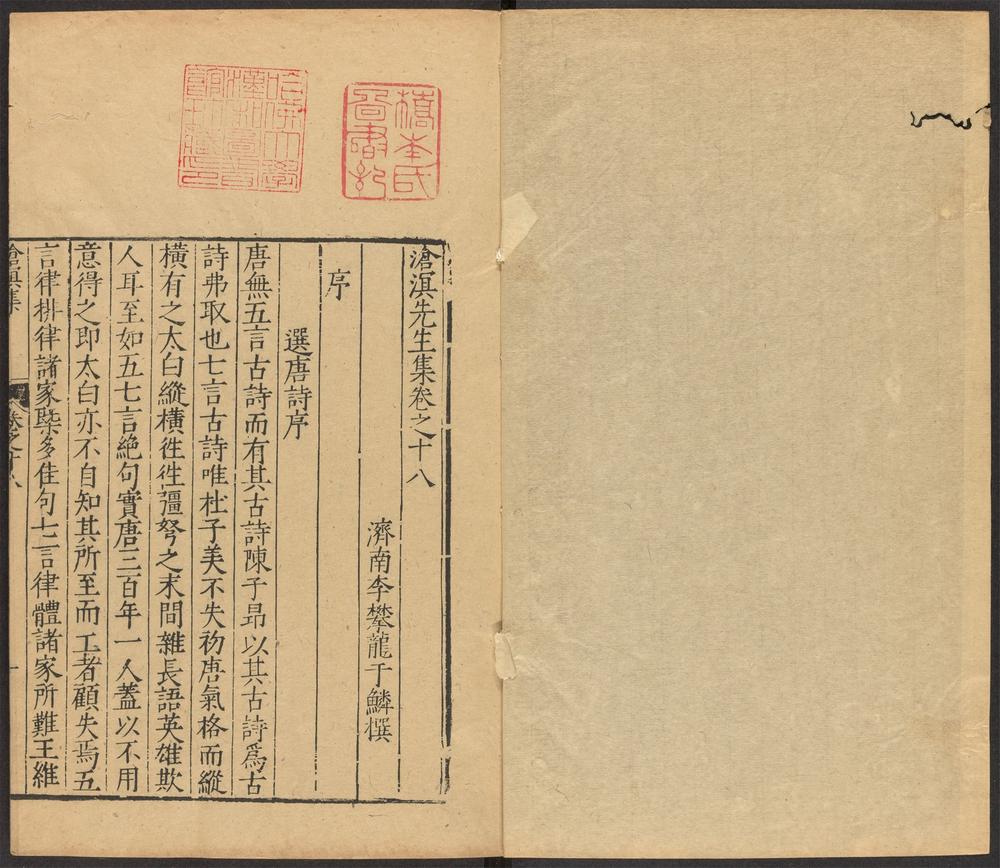 滄溟先生集卷之十八
濟南李攀龍于鱗撰
序
選唐詩序
唐無五言古詩而有其古詩陳子昻以其古詩爲古
詩弗取也七言古詩唯杜子美不失初唐氣格而縱
橫有之太白縱橫徃徃彊弩之末間雜長語英雄欺
人耳至如五七言絶句實唐三百年一人蓋以不用
意得之即太白亦不自知其所至而工者顧失焉五
言律排律諸家槩多佳句七言律體諸家所難王維
滄溟集
卷之十八
一
橋本氏
哈佛大學
漢和圖書
館珍藏印